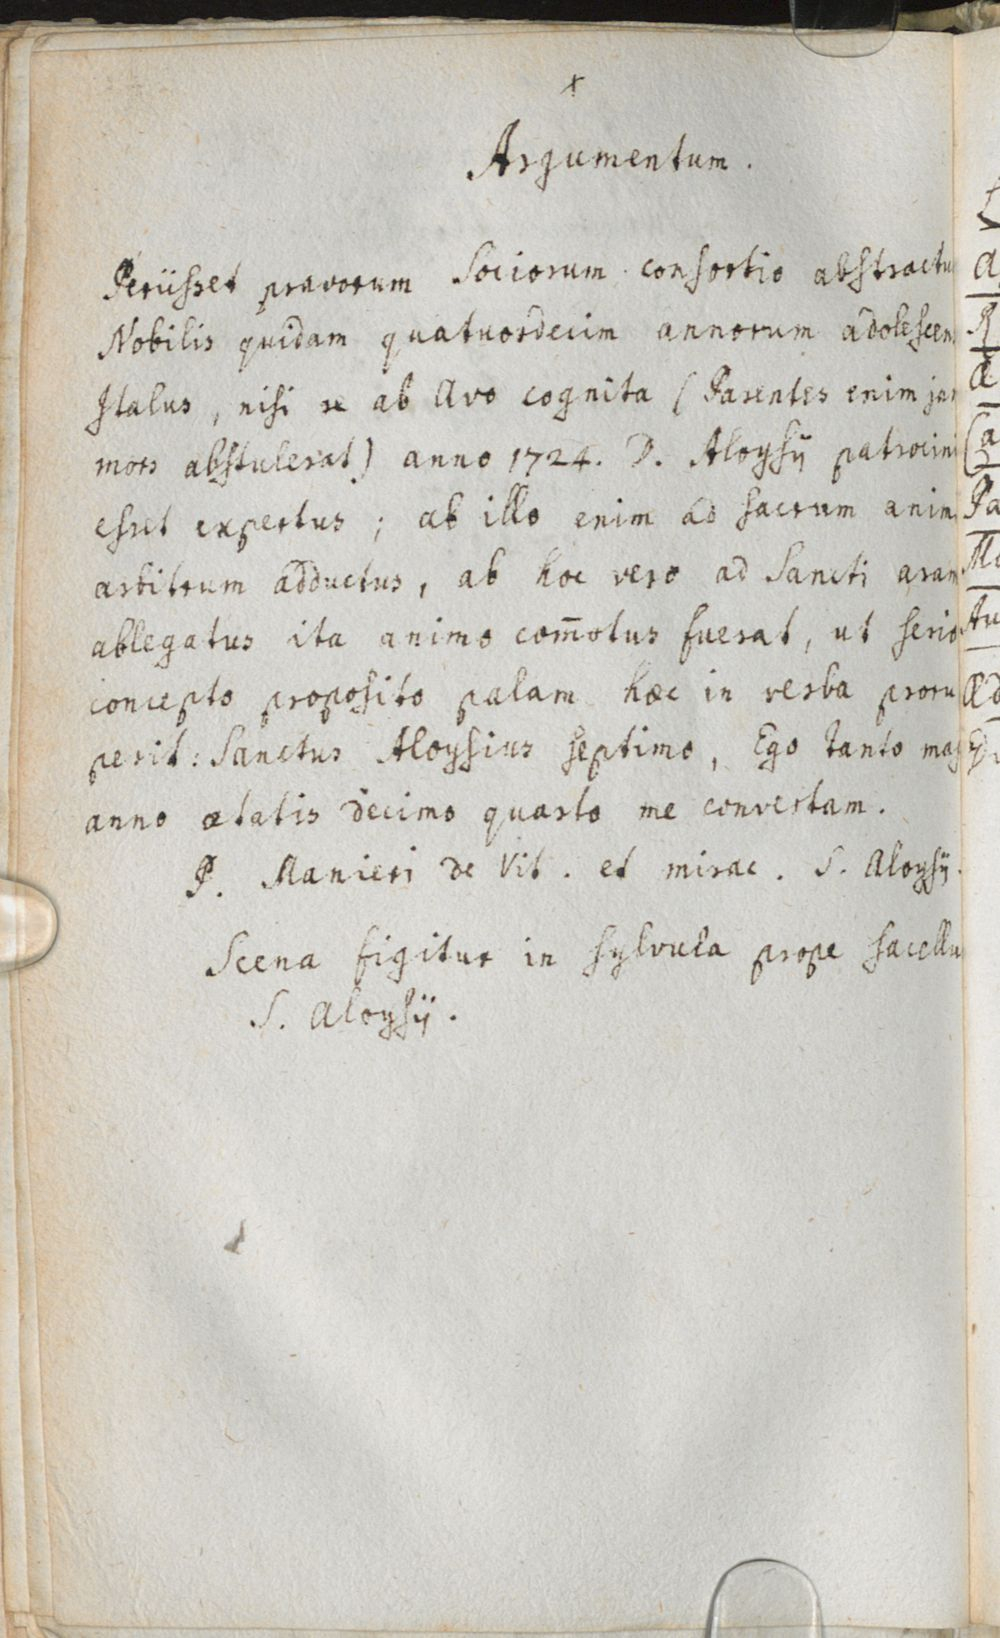 Argumentum.
Periisset pravorum Sociorum consortio abstractu
Nobilis quidam quatuordecim annorum adolescen
Italus, nisi re ab Avo cognita (Parentes enim ja
mors abstulerat) anno 1724. D. Aloysij patrocini
esset expertus; ab illo enim ad sacrum anim
arbitrum adductus, ab hoc vero ad Sancti aram
ablegatus ita animo com̄otus fuerat, ut serio
concepto proposito palam hæc in verba proru
perit: Sanctus Aloysius septimo, Ego tanto mag
anno ætatis decimo quarto me convertam.
P. Manieri de Vit. et mirac. S. Aloysij.
Scena figitur in sylvula prope sacellu
S. Aloysij.